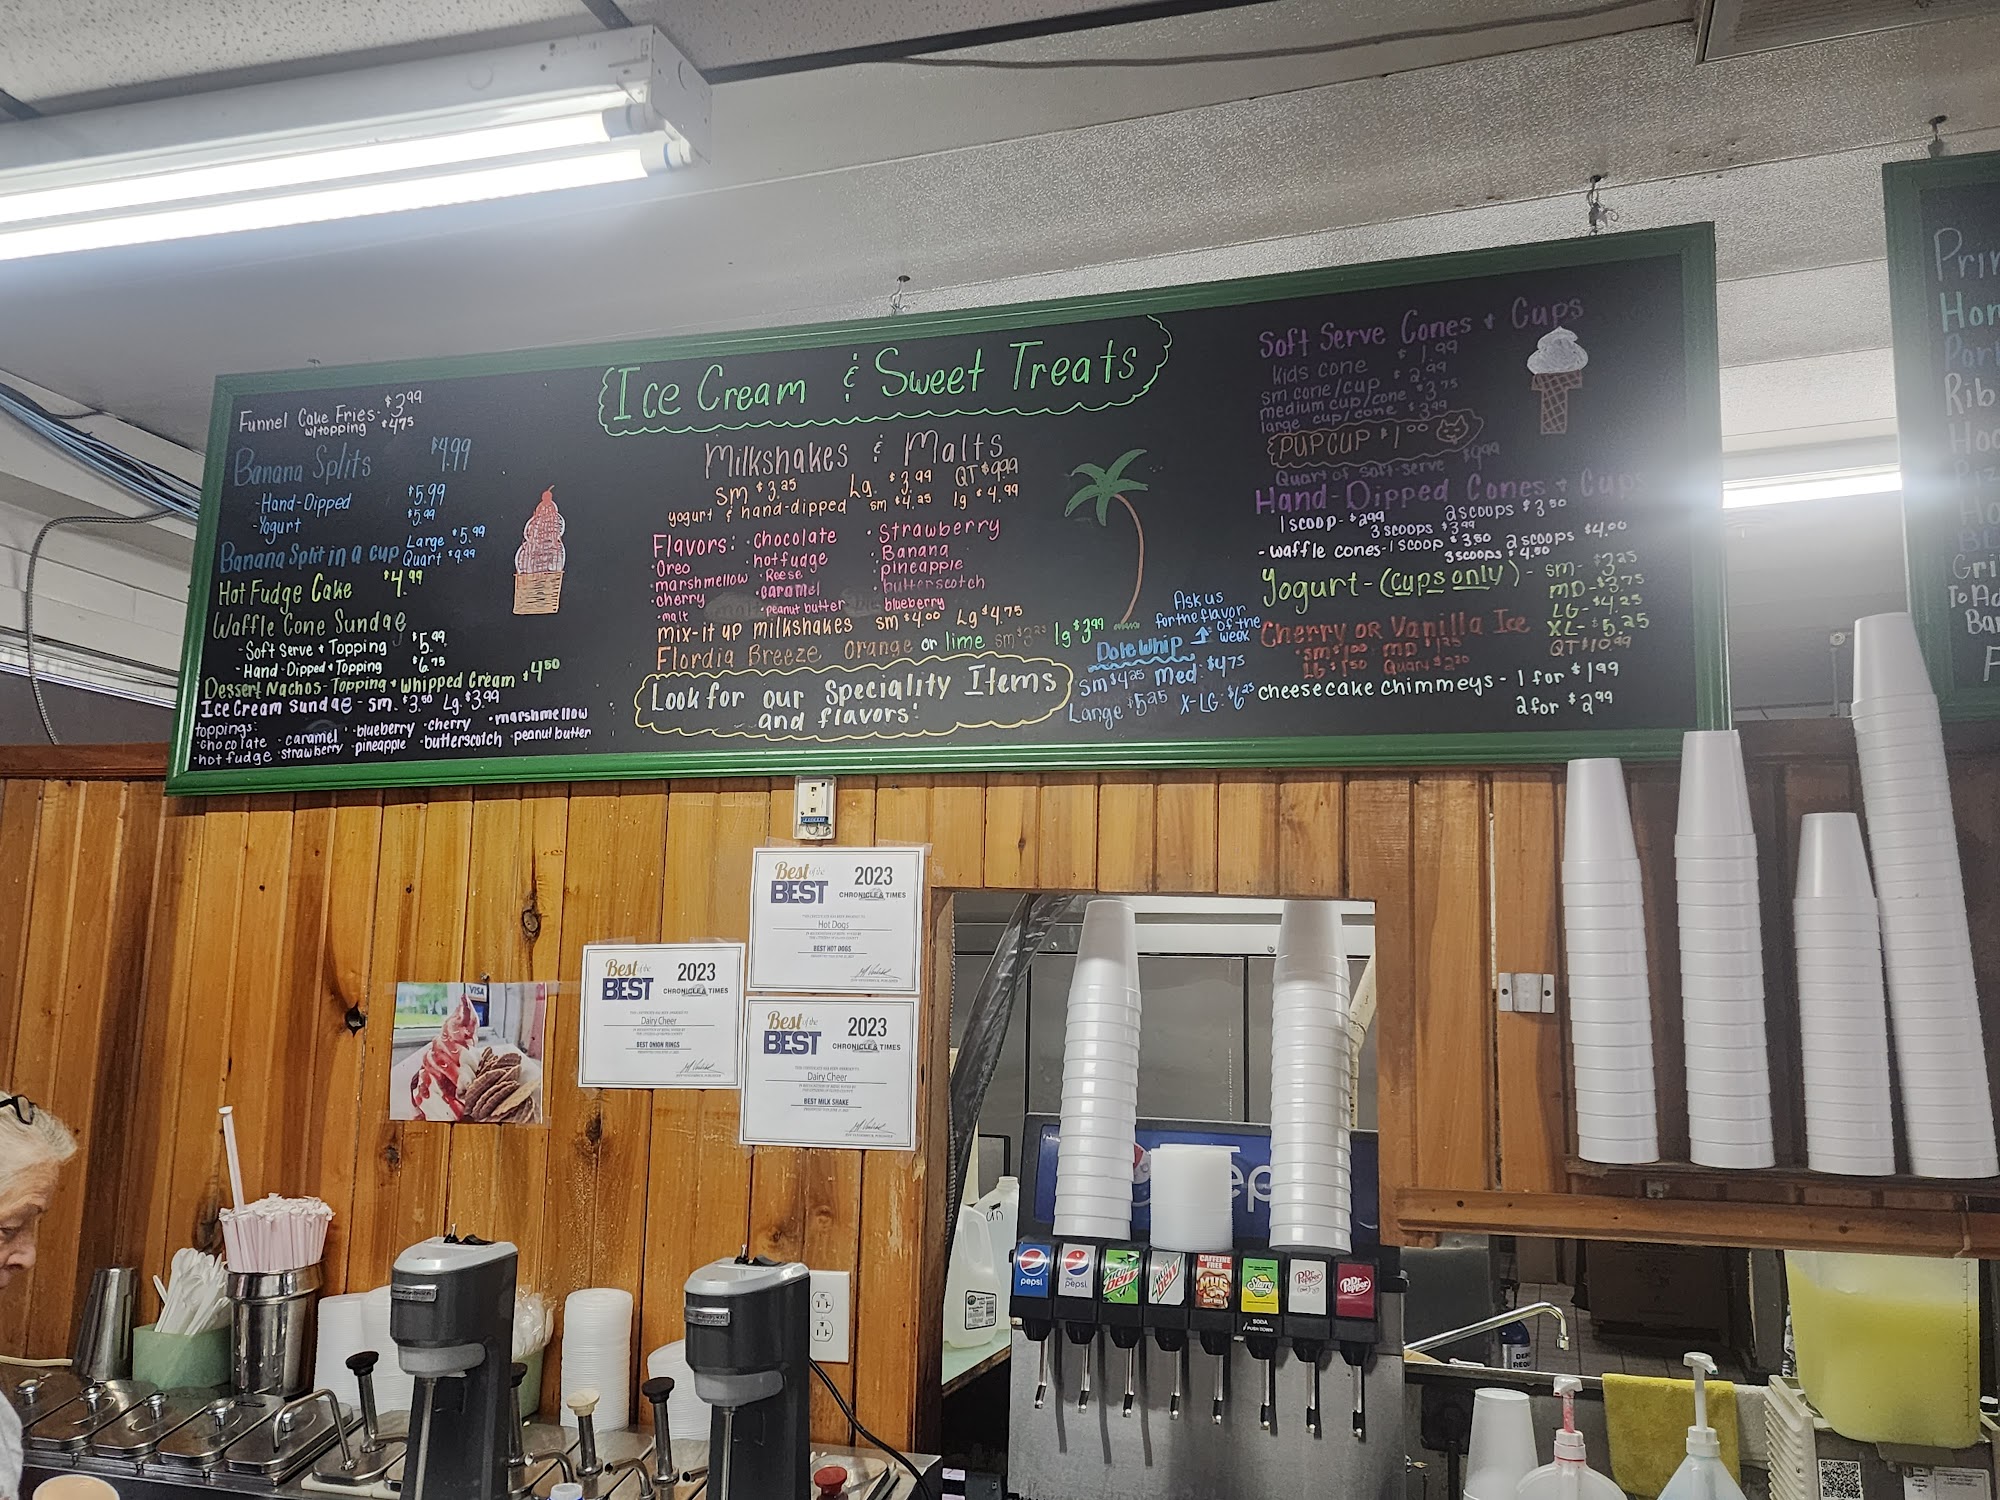 Ice Cream & Sweet Treats
Funnel Cake Fries - $3.99
w/topping $4.75
Banana Splits $4.99
-Hand-Dipped $5.99
-Yogurt $5.99
Banana Split in a cup Large $5.99
Quart $9.99
Hot Fudge Cake $4.99
Waffle Cone Sundae
-Soft Serve + Topping $5.99
-Hand-Dipped + Topping $6.75
Dessert Nachos - Topping + Whipped Cream $4.50
Ice Cream Sundae - sm. $3.50 Lg. $3.99
toppings:
·chocolate ·caramel ·blueberry ·cherry ·marshmellow
·hot fudge ·strawberry ·pineapple ·butterscotch ·peanut butter
Milkshakes & Malts
sm $3.25 Lg. $3.99 QT $9.99
yogurt & hand-dipped sm $4.25 lg $4.99
Flavors: ·chocolate ·Strawberry
·Oreo ·hot fudge ·Banana
·marshmellow ·Reese ·pineapple
·cherry ·caramel ·butterscotch
·malt ·peanut butter ·blueberry
mix-it up milkshakes sm $4.00 Lg $4.75
Flordia Breeze Orange or lime sm $3.25 lg $3.99
Look for our Speciality Items
and flavors!
Ask us
for the flavor
of the
week
Dole Whip
sm $4.25 Med: $4.75
Large $5.25 X-LG: $6.25
Soft Serve Cones + Cups
kids cone $1.99
sm cone/cup $2.99
medium cup/cone $3.75
large cup/cone $3.99
PUPCUP $1.00
Quart of soft-serve $9.99
Hand-Dipped Cones + Cups
1 scoop - $2.99 2 scoops $3.50
3 scoops $3.99
-waffle cones - 1 scoop $3.50 2 scoops $4.00
3 scoops $4.50
Yogurt - (cups only) - sm - $3.25
MD - $3.75
LG - $4.25
XL - $5.25
QT $10.99
Cherry OR Vanilla Ice
·sm $1.00 MD $1.25
LG $1.50
cheesecake chimmeys - 1 for $1.99
2 for $2.99
Prin
Hon
Por
Rib
Gri
To Ad
Ba
Best of the
BEST
2023
CHRONICLE & TIMES
Hot Dogs
BEST HOT DOGS
Best of the
BEST
2023
CHRONICLE & TIMES
Dairy Cheer
BEST ONION RINGS
Best of the
BEST
2023
CHRONICLE & TIMES
Dairy Cheer
BEST MILK SHAKE
VISA
pepsi
pepsi
CAFFEINE
FREE
MUG
Starry
Dr Pepper
Dr Pepper
SODA
PUSH DOWN